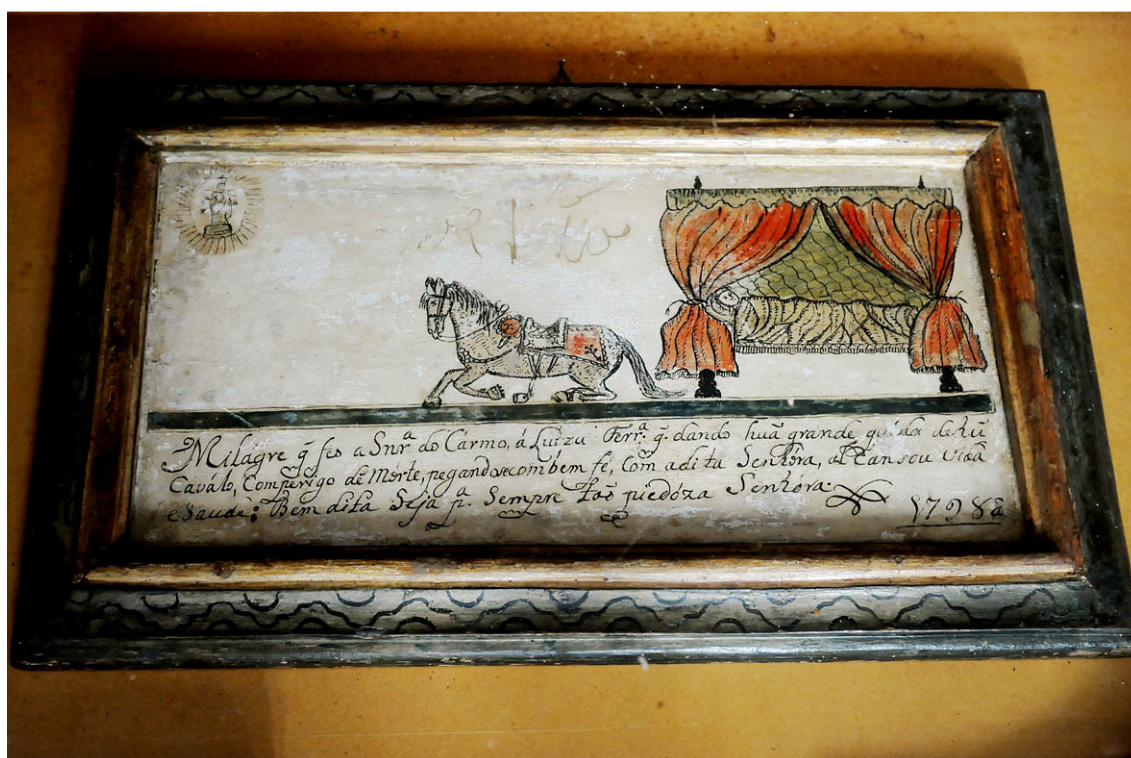 Milagre q̃ fes a Snr.ª do Carmo, á Luizu Ferr.ª q̃. dando huã grande quéda de hũ
Caválo, Com perigo de Mórte, pegandosecom bem fé, Com a dita Senhôra, alCansou vida
e Saude: Bem dita Seja p.ª Sempre taõ piedóza Senhóra.
1798